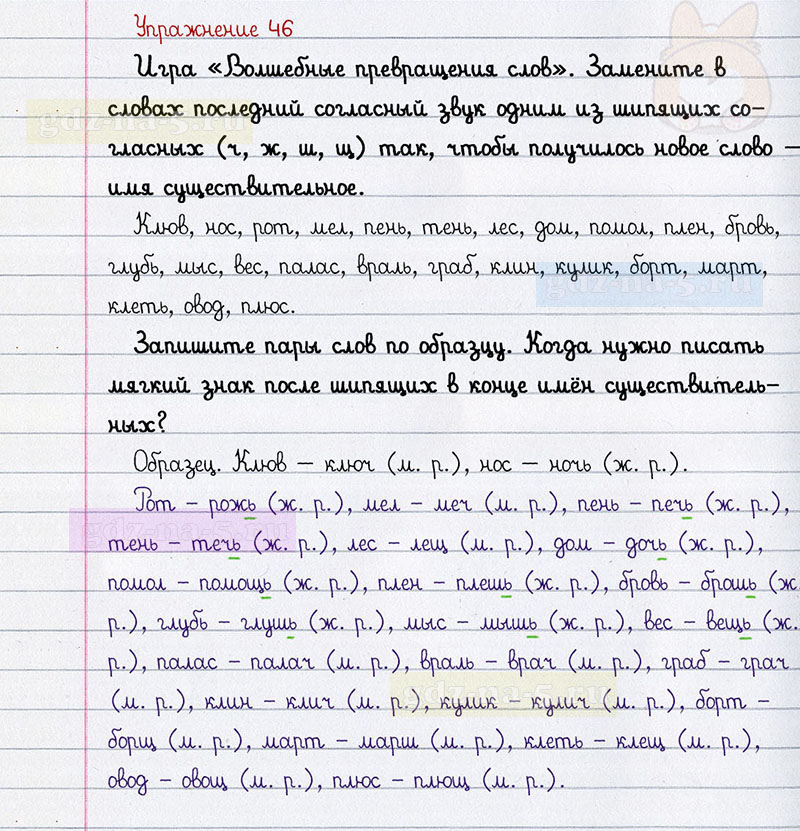 Упражнение 46
Игра «Волшебные превращения слов». Замените в
словах последний согласный звук одним из шипящих со-
гласных (ч, ж, ш, щ) так, чтобы получилось новое слово –
имя существительное.
Клюв, нос, рот, мел, пень, тень, лес, дом, помол, плен, бровь,
глубь, мыс, вес, палас, враль, граб, клин, кулик, борт, март,
клеть, овод, плюс.
Запишите пары слов по образцу. Когда нужно писать
мягкий знак после шипящих в конце имён существитель-
ных?
Образец. Клюв – ключ (м. р.), нос – ночь (ж. р.).
Рот – рожь (ж. р.), мел – меч (м. р.), пень – печь (ж. р.),
тень – течь (ж. р.), лес – лещ (м. р.), дом – дочь (ж. р.),
помол – помощь (ж. р.), плен – плешь (ж. р.), бровь – брошь (ж.
р.), глубь – глушь (ж. р.), мыс – мышь (ж. р.), вес – вещь (ж.
р.), палас – палач (м. р.), враль – врач (м. р.), граб – грач
(м. р.), клин – клич (м. р.), кулик – кулич (м. р.), борт –
борщ (м. р.), март – марш (м. р.), клеть – клещ (м. р.),
овод – овощ (м. р.), плюс – плющ (м. р.).
gdz-na-5.ru
gdz-na-5.ru
gdz-na-5.ru
gdz-na-5.ru